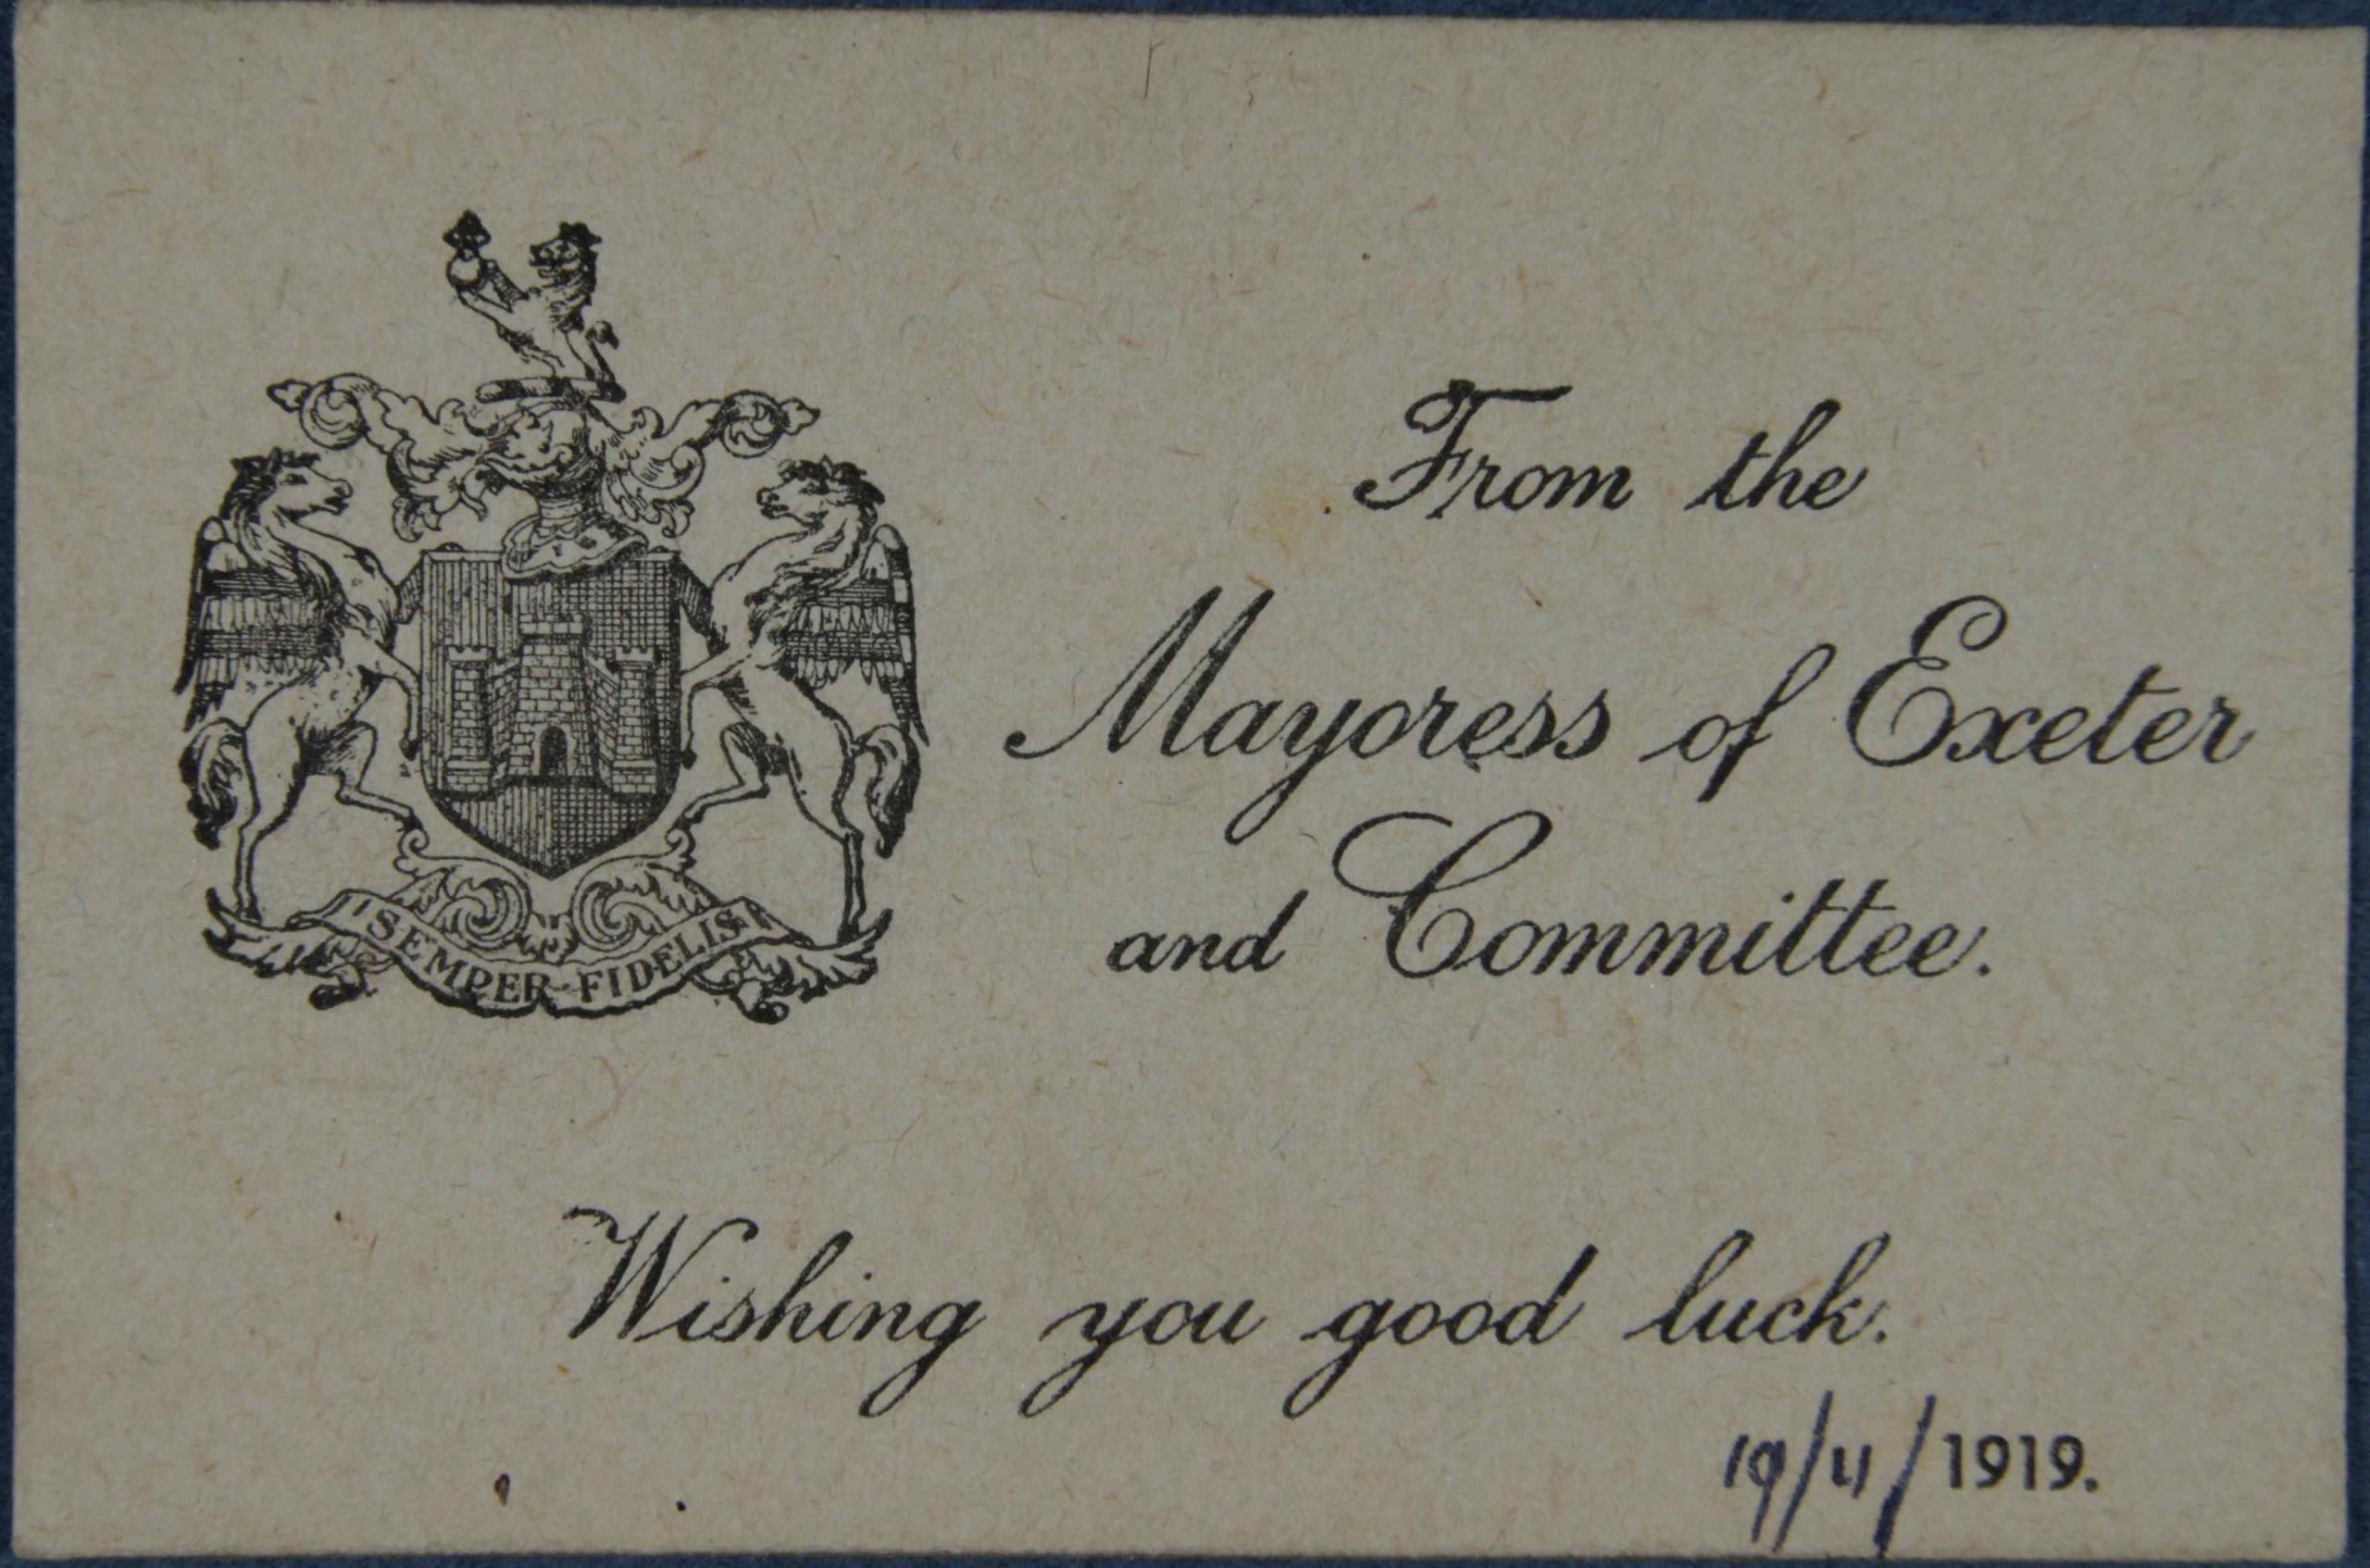 From the
Mayoress of Exeter
and Committee.
SEMPER FIDELIS
Wishing you good luck.
19/4/1919.